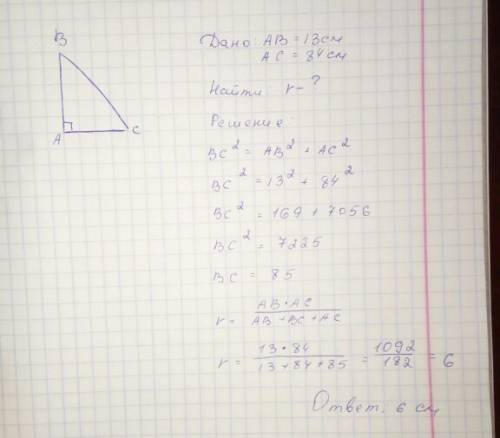 B
A
C
Дано: AB = 13 см
AC = 84 см
Найти: r - ?
Решение:
BC² = AB² + AC²
BC² = 13² + 84²
BC² = 169 + 7056
BC² = 7225
BC = 85
r = AB · AC / AB + BC + AC
r = 13 · 84 / 13 + 84 + 85 = 1092 / 182 = 6
Ответ. 6 см